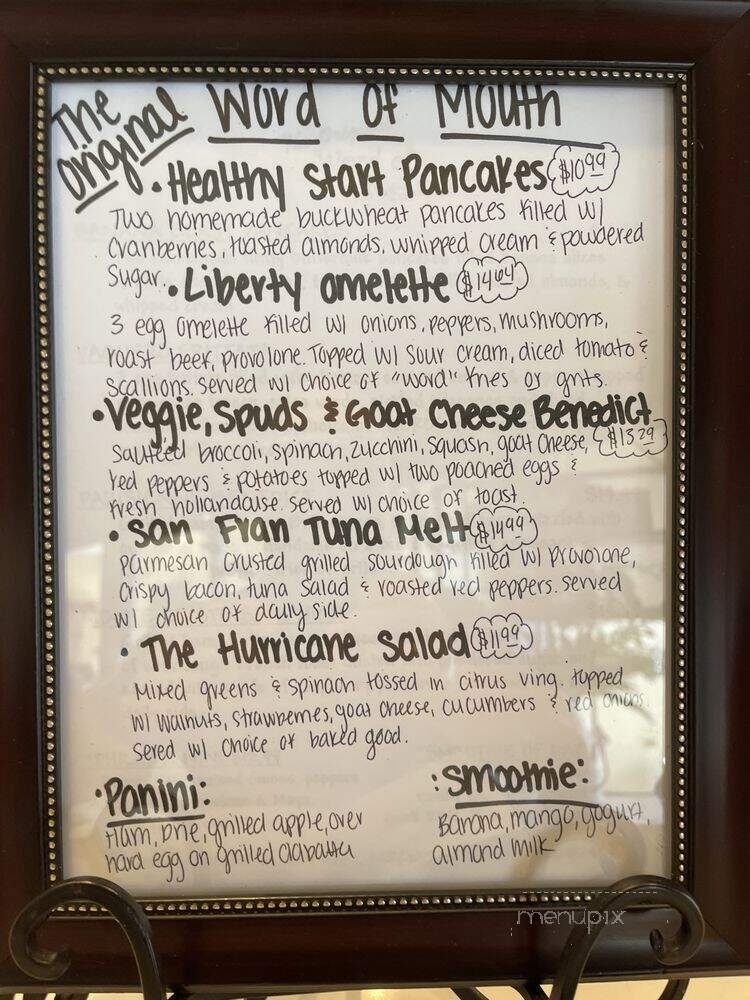 The Original Word of Mouth
• Healthy Start Pancakes $10.99
Two homemade buckwheat pancakes filled w/
cranberries, toasted almonds, whipped cream & powdered
sugar.
• Liberty Omelette $14.64
3 egg omelette filled w/ onions, peppers, mushrooms,
roast beef, provolone. Topped w/ sour cream, diced tomato &
scallions. Served w/ choice of "word" fries or grits.
• Veggie, Spuds & Goat Cheese Benedict
Sauteed broccoli, spinach, zucchini, squash, goat cheese, $13.29
red peppers & potatoes topped w/ two poached eggs &
fresh hollandaise. Served w/ choice of toast.
• San Fran Tuna Melt $14.99
Parmesan crusted grilled sourdough filled w/ provolone,
crispy bacon, tuna salad & roasted red peppers. Served
w/ choice of daily side.
• The Hurricane Salad $11.99
Mixed greens & spinach tossed in citrus ving. topped
w/ walnuts, strawberries, goat cheese, cucumbers & red onions.
Sered w/ choice of baked good.
• Panini:
Ham, brie, grilled apple, over
hard egg on grilled ciabatta
: Smoothie:
Banana, mango, yogurt,
almond milk
menupix